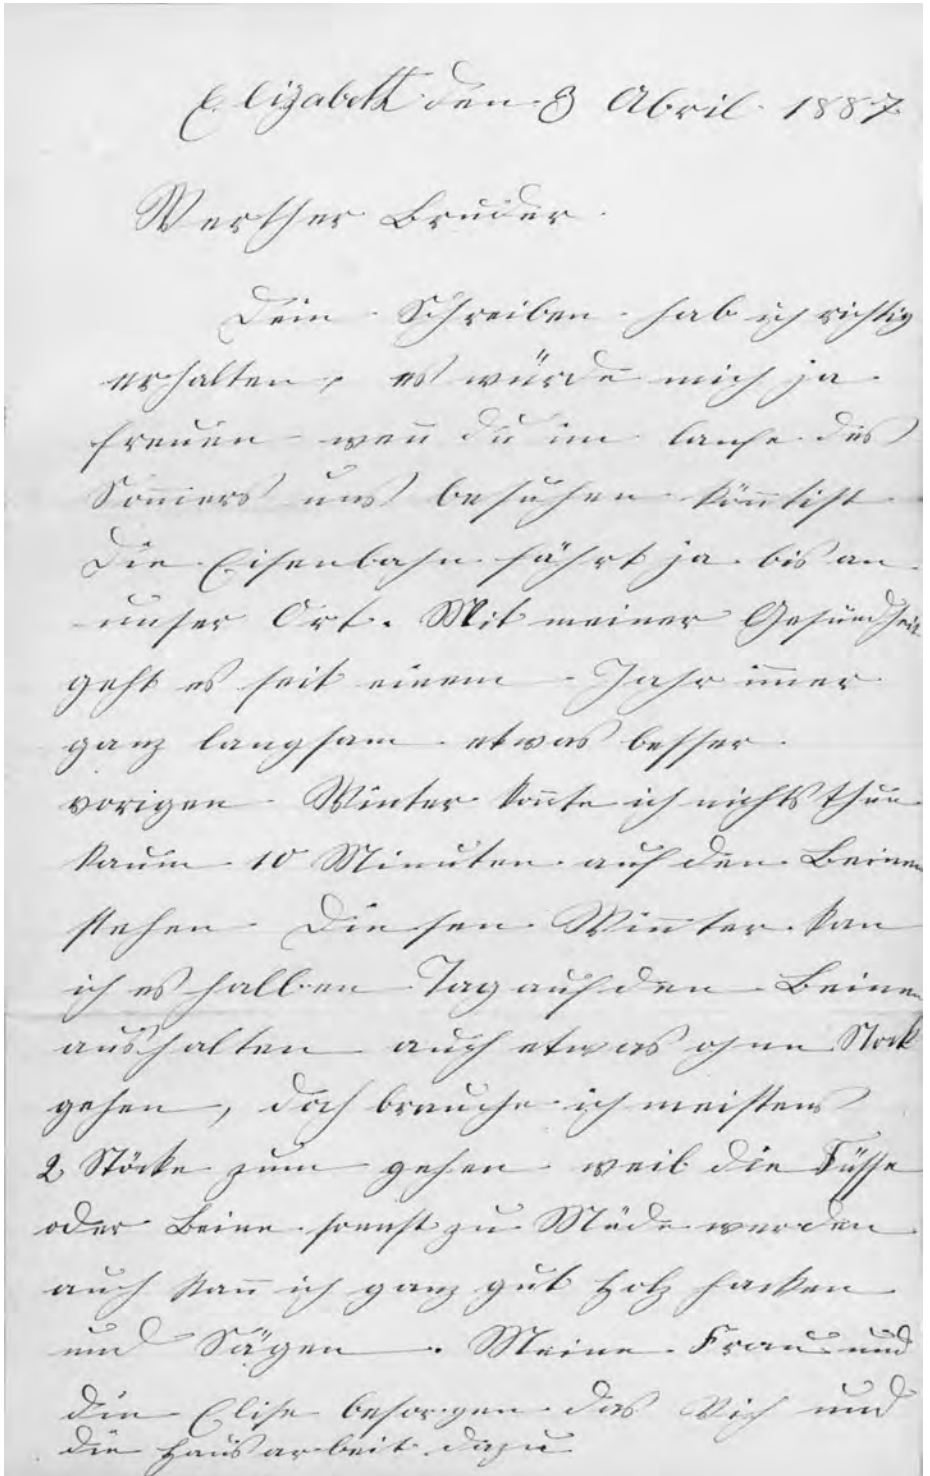 Elizabeth den 3 Abril 1887
Werther Bruder.
Dein Schreiben hab ich richtig
erhalten, es würde mich ja
freuen wen̄ du im laufe des
Som̄ers uns besuchen kön̄tist
Die Eisenbahn fährt ja bis an
unser Ort. Mit meiner Gesundheit
geht es seit einem Jahr im̄er
ganz langsam etwas besser.
vorigen Winter kon̄te ich nichts thun
kaum 10 Minuten auf den Beinen
stehen Diesen Winnter kan
ich es halben Tag auf den Beinen
aushalten auch etwas ohne Stock
gehen, doch brauche ich meistens
2 Stöcke zum gehen weil die Füsse
oder Beine sonnst zu Müde werden
auch kan̄ ich ganz gut Holz hacken
und Sägen. Meine Frau und
die Elise besorgen das Vieh und
die Hausarbeit dazu